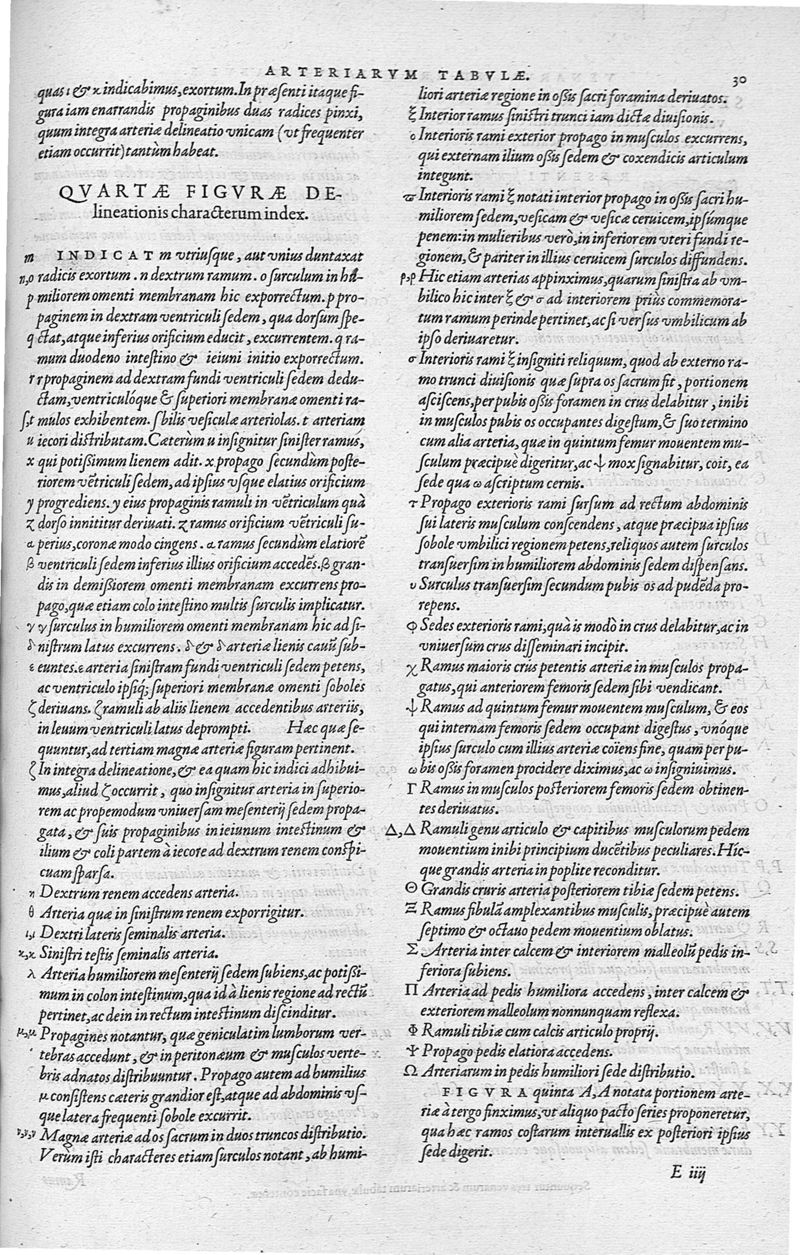 ARTERIARVM TABVLÆ.
30
quas ι & κ indicabimus, exortum. In præsenti itaque fi-
gura iam enarrandis propaginibus duas radices pinxi,
quum integra arteriæ delineatio vnicam (vt frequenter
etiam occurrit) tantùm habeat.
QVARTÆ FIGVRÆ DE-
lineationis characterum index.
m INDICAT m vtriusque, aut vnius duntaxat
n,o radicis exortum. n dextrum ramum. o surculum in hu-
p miliorem omenti membranam hic exporrectum. p pro-
paginem in dextram ventriculi sedem, qua dorsum spe-
q ctat, atque inferius orificium educit, excurrentem. q ra-
mum duodeno intestino & ieiuni initio exporrectum.
r r propaginem ad dextram fundi ventriculi sedem dedu-
ctam, ventriculóque & superiori membranæ omenti ra-
s,t mulos exhibentem. s bilis vesiculæ arteriolas. t arteriam
u iecori distributam. Cæterùm u insignitur sinister ramus,
x qui potißimum lienem adit. x propago secundùm poste-
riorem ventriculi sedem, ad ipsius vsque elatius orificium
y progrediens. y eius propaginis ramuli in vẽtriculum quà
z dorso innititur deriuati. z ramus orificium vẽtriculi su-
α perius, coronæ modo cingens. α ramus secundùm elatiorẽ
β ventriculi sedem inferius illius orificium accedẽs. β gran-
dis in demißiorem omenti membranam excurrens pro-
pago, quæ etiam colo intestino multis surculis implicatur.
γ γ surculus in humiliorem omenti membranam hic ad si-
δ nistrum latus excurrens. δ & δ arteriæ lienis cauũ sub-
ε euntes. ε arteria sinistram fundi ventriculi sedem petens,
ac ventriculo ipsiq; superiori membranæ omenti soboles
ζ deriuans. ζ ramuli ab aliis lienem accedentibus arteriis,
in leuum ventriculi latus deprompti. Hæc quæ se-
quuntur, ad tertiam magnæ arteriæ figuram pertinent.
ζ In integra delineatione, & ea quam hic indici adhibui-
mus, aliud ζ occurrit, quo insignitur arteria in superio-
rem ac propemodum vniuersam mesenterij sedem propa-
gata, & suis propaginibus in ieiunum intestinum &
ilium & coli partem à iecore ad dextrum renem conspi-
cuam sparsa.
η Dextrum renem accedens arteria.
θ Arteria quæ in sinistrum renem exporrigitur.
ι,ι Dextri lateris seminalis arteria.
κ,κ Sinistri testis seminalis arteria.
λ Arteria humiliorem mesenterij sedem subiens, ac potißi-
mum in colon intestinum, qua id à lienis regione ad rectũ
pertinet, ac dein in rectum intestinum discinditur.
μ,μ Propagines notantur, quæ geniculatim lumborum ver-
tebras accedunt, & in peritonæum & musculos verte-
bris adnatos distribuuntur. Propago autem ad humilius
μ consistens cæteris grandior est, atque ad abdominis vs-
que latera frequenti sobole excurrit.
ν,ν,ν Magnæ arteriæ ad os sacrum in duos truncos distributio.
Verùm isti characteres etiam surculos notant, ab humi-
liori arteriæ regione in oßis sacri foramina deriuatos.
ξ Interior ramus sinistri trunci iam dictæ diuisionis.
ο Interioris rami exterior propago in musculos excurrens,
qui externam ilium oßis sedem & coxendicis articulum
integunt.
ϖ Interioris rami ξ notati interior propago in oßis sacri hu-
miliorem sedem, vesicam & vesicæ ceruicem, ipsúmque
penem: in mulieribus verò, in inferiorem vteri fundi re-
gionem, & pariter in illius ceruicem surculos diffundens.
ρ,ρ Hic etiam arterias appinximus, quarum sinistra ab vm-
bilico hic inter ξ & σ ad interiorem prius commemora-
tum ramum perinde pertinet, ac si versus vmbilicum ab
ipso deriuaretur.
σ Interioris rami ξ insigniti reliquum, quod ab externo ra-
mo trunci diuisionis quæ supra os sacrum fit, portionem
asciscens, per pubis oßis foramen in crus delabitur, inibi
in musculos pubis os occupantes digestum, & suo termino
cum alia arteria, quæ in quintum femur mouentem mu-
sculum præcipuè digeritur, ac ψ mox signabitur, coit, ea
sede qua ω ascriptum cernis.
τ Propago exterioris rami sursum ad rectum abdominis
sui lateris musculum conscendens, atque præcipua ipsius
sobole vmbilici regionem petens, reliquos autem surculos
transuersim in humiliorem abdominis sedem dispensans.
υ Surculus transuersim secundum pubis os ad pudẽda pro-
repens.
φ Sedes exterioris rami, quà is modò in crus delabitur, ac in
vniuersum crus disseminari incipit.
χ Ramus maioris crus petentis arteriæ in musculos propa-
gatus, qui anteriorem femoris sedem sibi vendicant.
ψ Ramus ad quintum femur mouentem musculum, & eos
qui internam femoris sedem occupant digestus, vnóque
ipsius surculo cum illius arteriæ coïens fine, quam per pu-
ω bis oßis foramen procidere diximus, ac ω insigniuimus.
Γ Ramus in musculos posteriorem femoris sedem obtinen-
tes deriuatus.
Δ,Δ Ramuli genu articulo & capitibus musculorum pedem
mouentium inibi principium ducẽtibus peculiares. Híc-
que grandis arteria in poplite reconditur.
Θ Grandis cruris arteria posteriorem tibiæ sedem petens.
Ξ Ramus fibulã amplexantibus musculis, præcipuè autem
septimo & octauo pedem mouentium oblatus.
Σ Arteria inter calcem & interiorem malleolũ pedis in-
feriora subiens.
Π Arteria ad pedis humiliora accedens, inter calcem &
exteriorem malleolum nonnunquam reflexa.
Φ Ramuli tibiæ cum calcis articulo proprij.
Ψ Propago pedis elatiora accedens.
Ω Arteriarum in pedis humiliori sede distributio.
FIGVRA quinta A, A notata portionem arte-
riæ à tergo finximus, vt aliquo pacto series proponeretur,
qua hæc ramos costarum interuallis ex posteriori ipsius
sede digerit.
E iiij